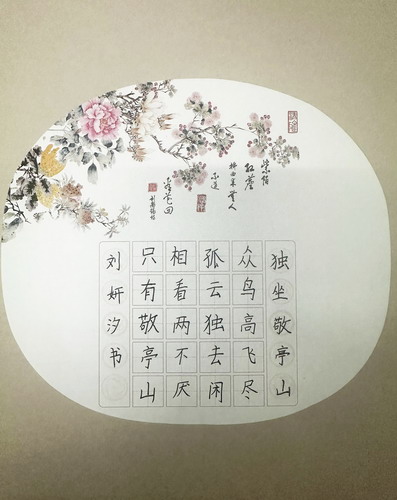 独坐敬亭山
众鸟高飞尽
孤云独去闲
相看两不厌
只有敬亭山
刘妍汐书